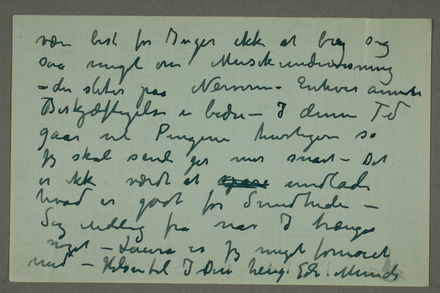 være best for Inger ikke at bry sig
saa meget om Musikundervisning
– der sliter paa Nerverne – Enhver annen
Beskjæftigelse er bedre – I denne Tid
gaar vel Pengene hurtigere so
Jeg skal sende ger mer snart – Det
er ikke værdt at spare undlade
hvad er godt for Sundheden –
Sig endelig fra naar I trænger
noget – Laura er jeg meget fornøiet
med – Hilsen til J Din heng. Edv. Munch